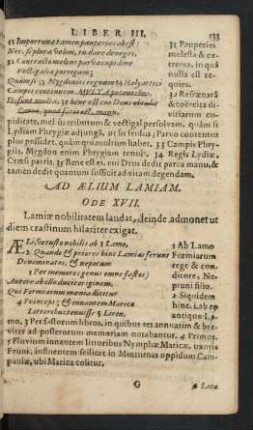 LIBER III. 133
31 Importuna tamen pauperies abest:
Nec, si plura velim, tu dare deneges.
32 Contracto melius parva cupidine
Vectigalia porrigam;
Quàm si 33 Mygdoniis regnum 34 Halyattici
Campis continuem. MULTA petentibus
Desunt multa. 35 bene est cui Deus obtulit
Parca, quod satis est, manu.
31 Pauperies
molesta & ex-
trema, in qua
nulla est
32 Refrænatâ
& coërcita di-
vitiarum cu-
piditate, mel iùs tributum & vectigal persolvam, quàm si
Lydiam Phrygiæ adjungā, ut sit sensus; Parvo contentem
plus possidet, quàm qui multum habet. 33 Campis Phry-
giis. Megdon enim Phrygiam tenuit. 34 Regis Lydiæ,
Crœsi patris. 35 Bene est ei, cui Deus dedit parca manu, &
tamen dedit quantum sufficit ad vitam degendam.
AD ÆLIUM LAMIAM.
ODE XVII.
Lamiæ nobilitatem laudat, deinde admonet ut
diem crastinum hilariter exigat.
ÆLi, vetusto nobilis ab 1 Lamo,
2 Quando & priores hinc Lamias ferunt
Denominatos, & nepotum
3 Per memores genus omne fastos;
Autore ab illo ducit originem,
Qui Formiarum mœnia dicitur
4 Princeps; & innantem Maricæ
Littoribus tenuisse 5 Lirim,
1 Ab Lamo
Formiarum
rege & con-
ditore, Ne-
ptuni filio.
2 Siquidem
hinc. Lab ep
antiquo La-
mo. 3 Per fastorum libros, in quibus res annuatim & bre-
viter ad posterorum memoriam notabantur. 4 Primus.
5 Fluvium innantem littoribus Nymphæ Maricæ.
Fruni, influentem scilicet in Minturnas oppidum Cam-
paniæ, ubi Marica colitur.
G 6 Latè